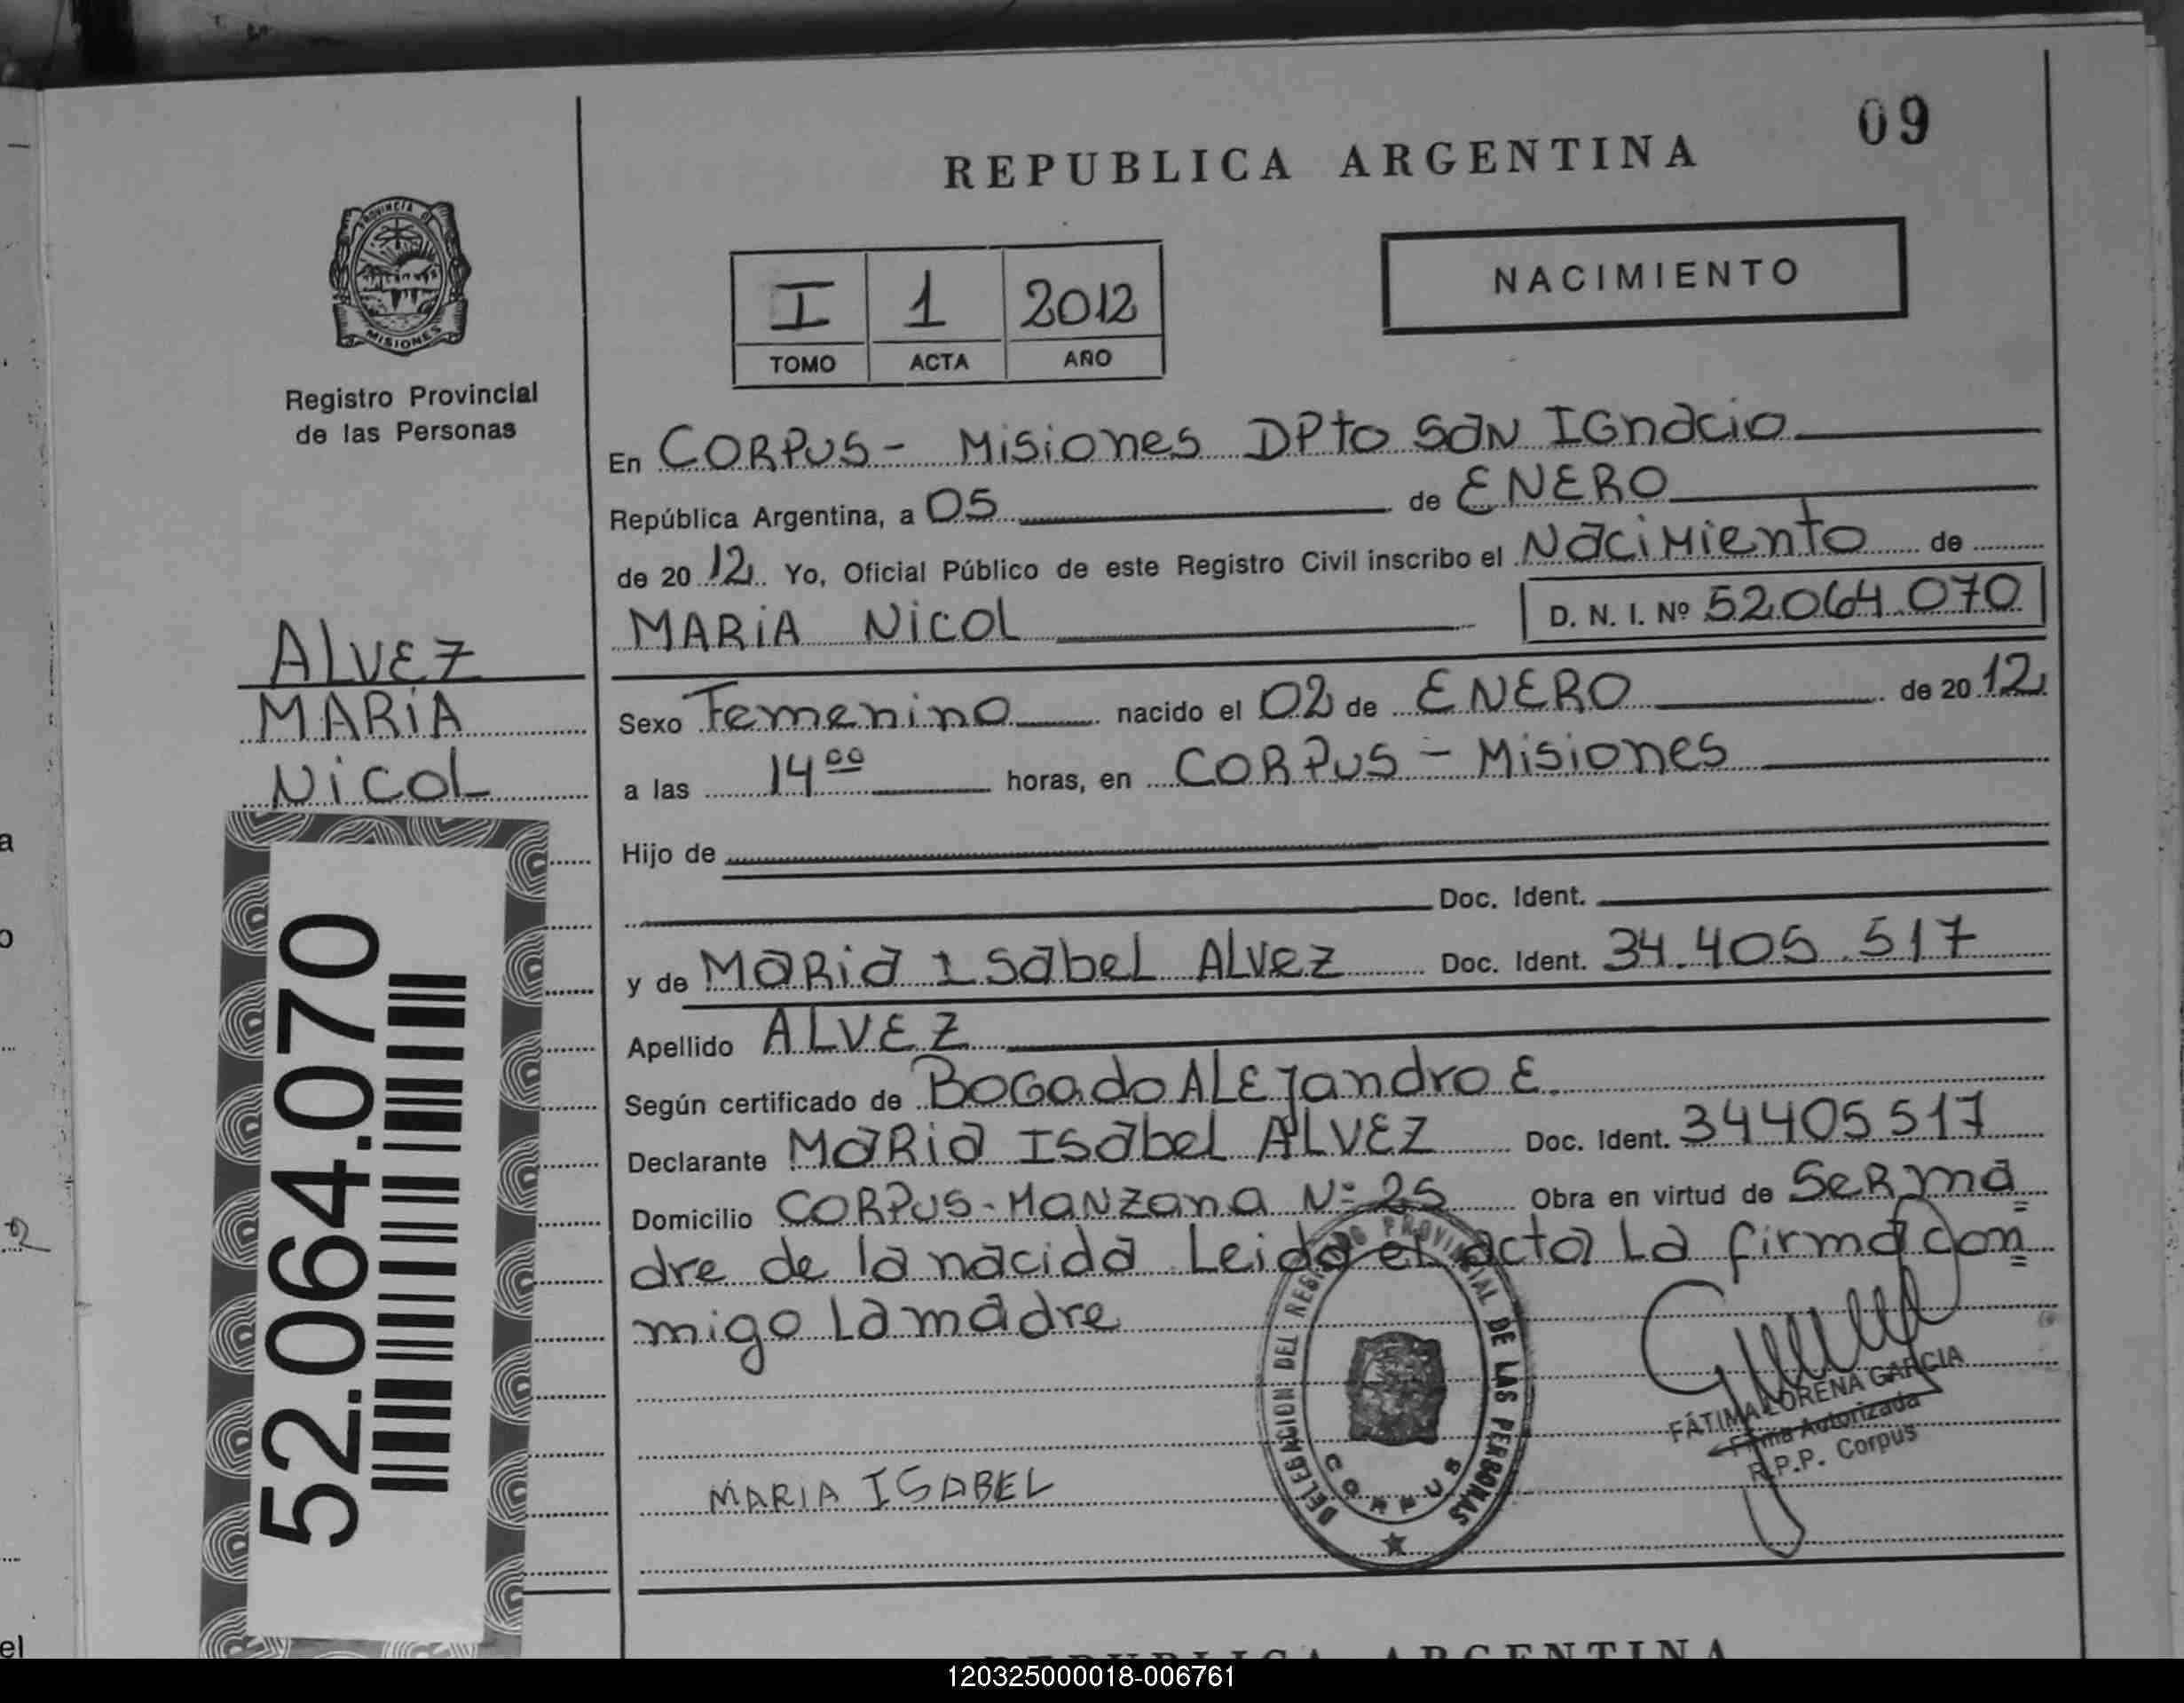 09
REPUBLICA ARGENTINA
PROVINCIA DE
MISIONES
Registro Provincial
de las Personas
NACIMIENTO
I 1 2012
TOMO ACTA AÑO
En CORPUS - Misiones DPto SAN IGnacio
República Argentina, a 05 de ENERO
de 2012 Yo, Oficial Público de este Registro Civil inscribo el Nacimiento de
MARIA NicoL
D. N. I. Nº 52.064.070
ALVEZ
MARIA
NicoL
Sexo Femenino nacido el 02 de ENERO de 2012
a las 14 00 horas, en CORPUS - Misiones
Hijo de
Doc. Ident.
y de MARia Isabel Alvez Doc. Ident. 34.405.517
Apellido ALVEZ
Según certificado de BOGado ALEJandro E.
Declarante MaRia Isabel ALVEZ Doc. Ident. 34405517
Domicilio CORPUS - Manzana Nº 25 Obra en virtud de SeR ma
dre de la nacida Leida el acta La firma con
migo La madre
MARIA ISABEL
DELEGACION DEL REGISTRO PROVINCIAL DE LAS PERSONAS
CORPUS
FÁTIMA LORENA GARCIA
Firma Autorizada
R.P.P. Corpus
52.064.070
a
o
el
REPUBLICA ARGENTINA
120325000018-006761